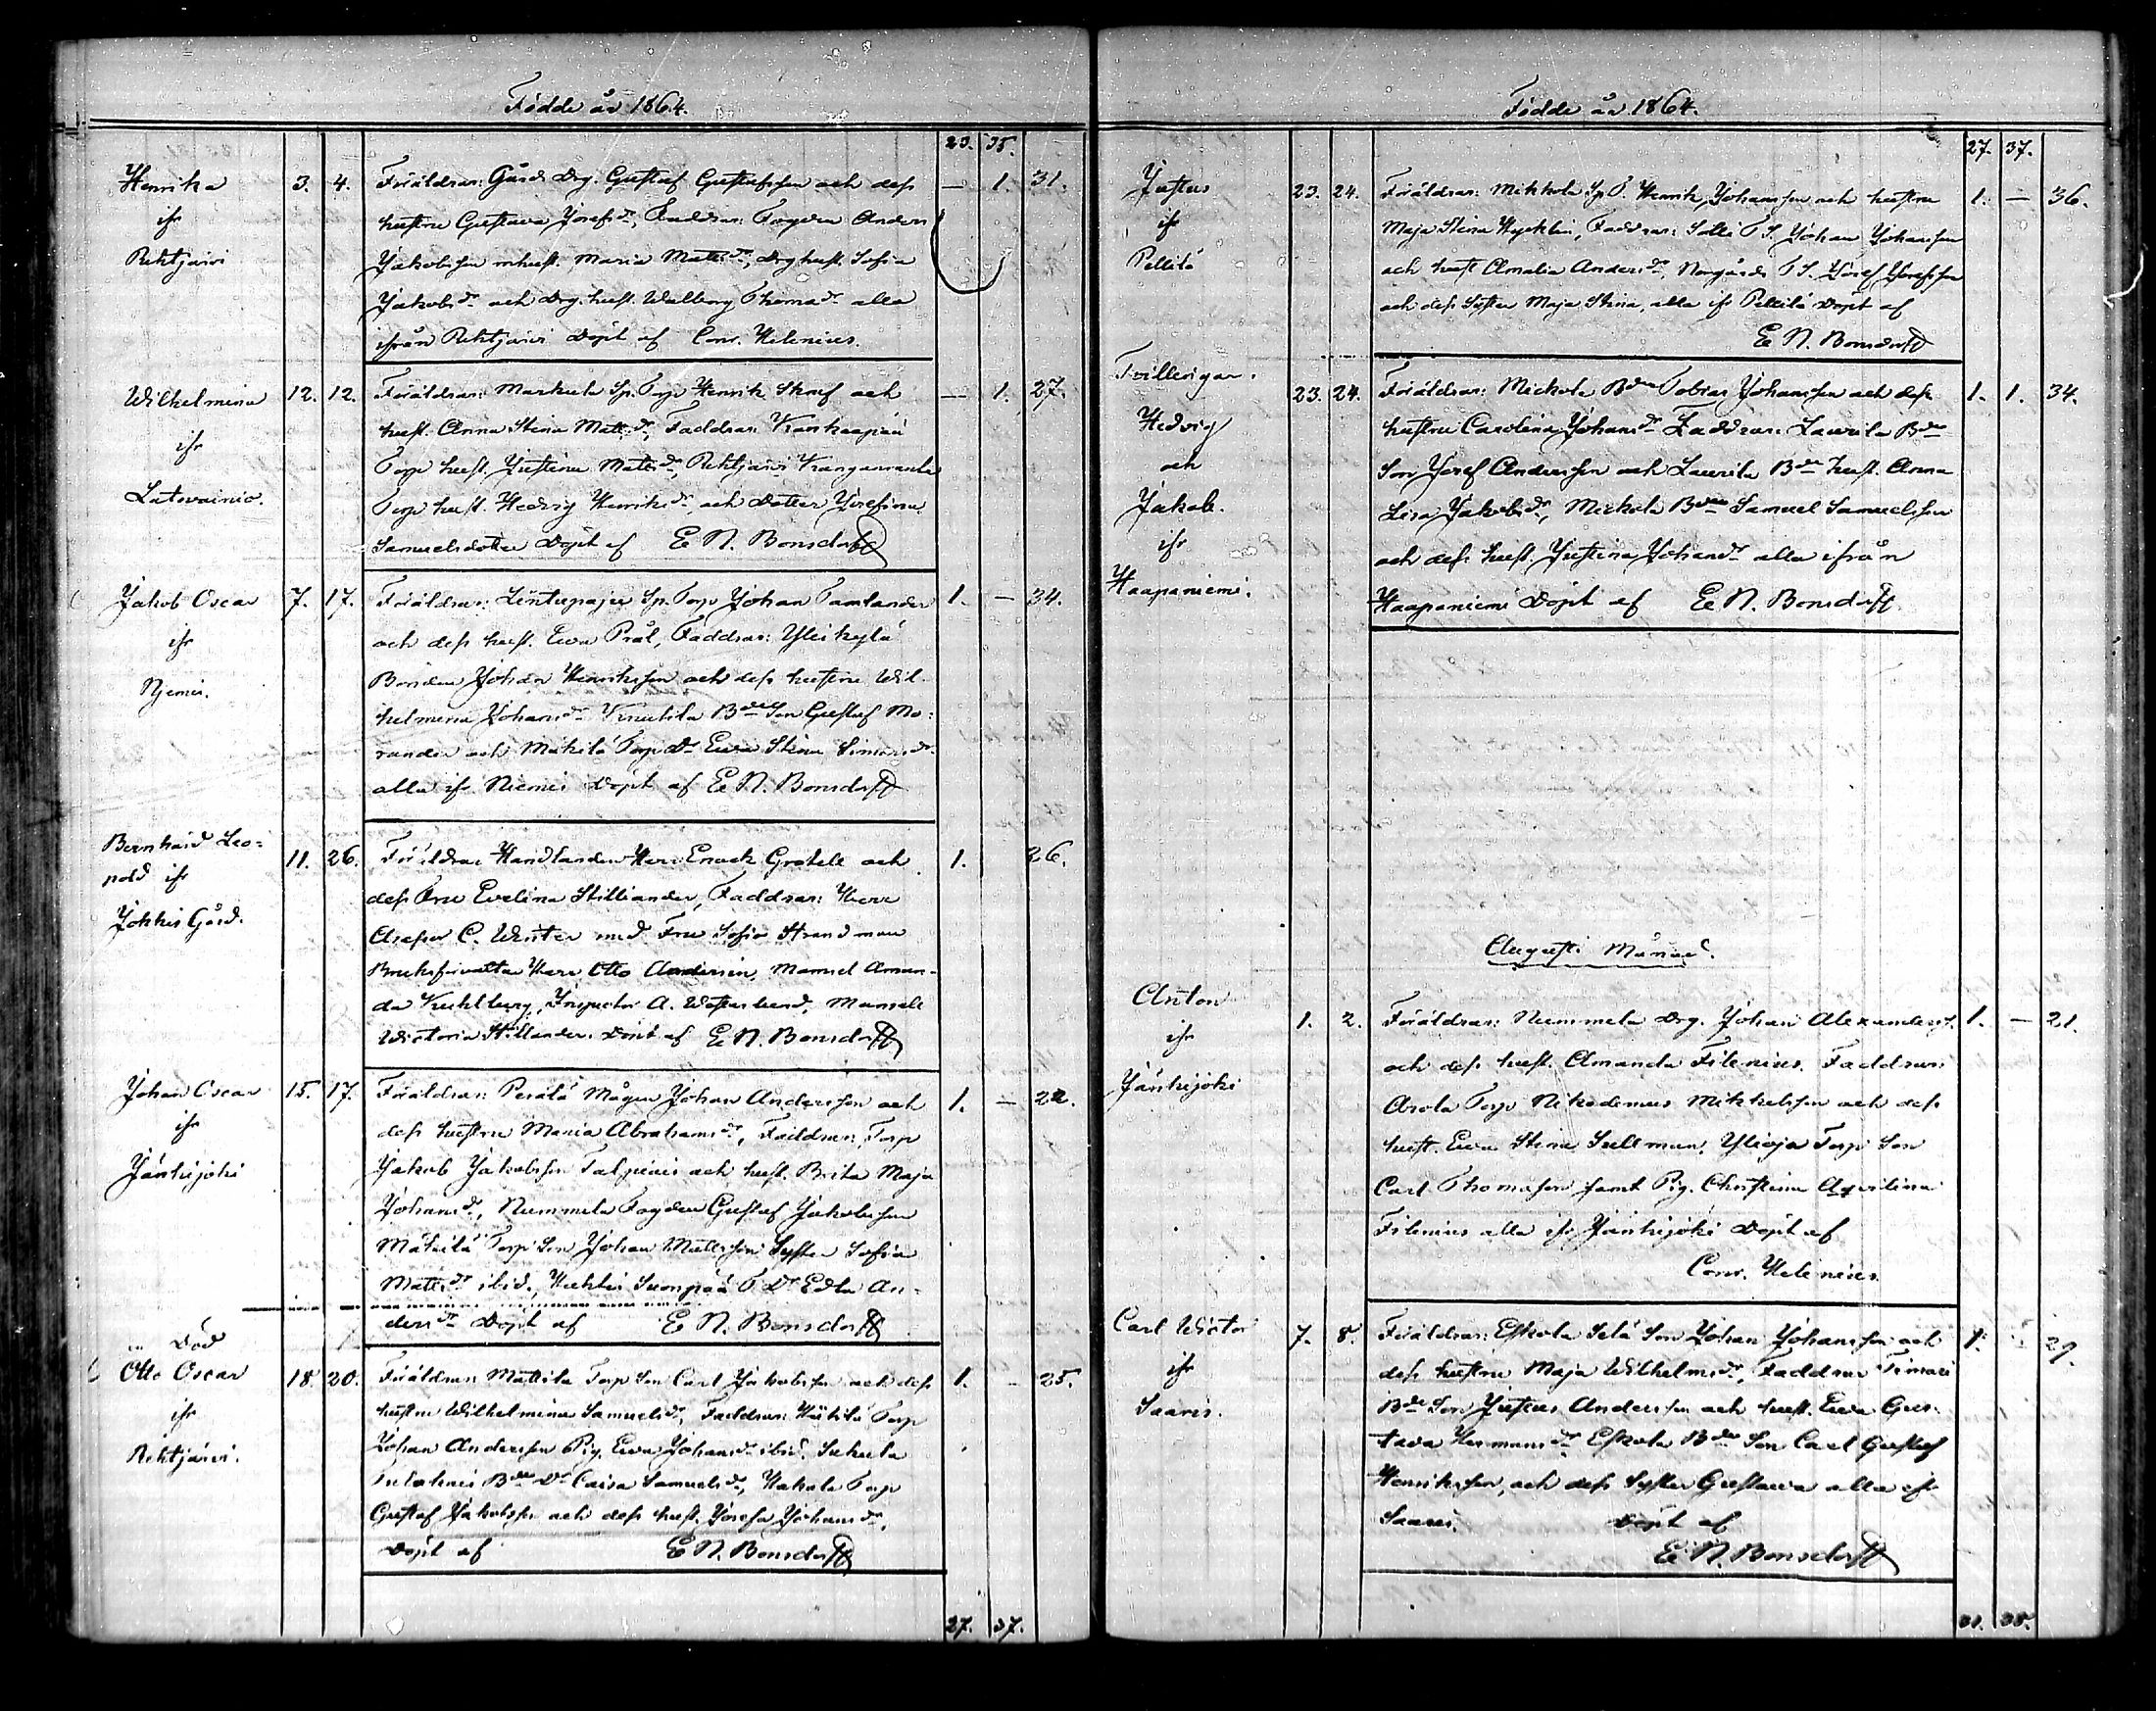 Födde år 1864.
23. 35.
Henrika 3. 4. Föräldrar: Gårds Drg. Gustaf Gustafsson och dess — 1. 31.
ifr hustru Gustava Josefsdr, Faddrar: Fogden Anders
Rehtjärvi Jakobsson m hust. Maria Mattsdr, Drg hust. Sofia
Jakobsdr och Drg. hust. Walborg Thomasdr alla
ifrån Rehtjärvi Döpt af Conr. Helenius.
Wilhelmina 12. 12. Föräldrar: Markula Sp. Torp Henrik Skarf och — 1. 27.
ifr hust. Anna Stina Mattsdr, Faddrar: Kankaapää
Torp hust. Justina Mattsdr, Rehtjärvi
Latovainio. Torp hust. Hedvig Henriksdr, och Dotter Josefina
Samuelsdotter Döpt af E N. Bonsdorff
Jakob Oscar 7. 17. Föräldrar: Lintupaju Sp. Torp Johan Tamlander 1. — 34.
ifr och dess hust. Eva Prål, Faddrar: Ylikylä
Njemis. Bonden Johan Henriksson och dess hustru Wil-
helmina Johansdr Knuutila Bde Son Gustaf Mo-
rander och Mäkilä Torp Dr Eva Stina Simonsdr
alla ifr Niemis Döpt af E N. Bonsdorff
Bernhard Leo-
pold ifr 11. 26. Föräldrar Handlanden Herr Enock Grotell och 1. 26.
Jokkis Gård. dess Fru Evelina Stillander, Faddrar: Herr
C. Winter med Fru Sofia Strandman
Bruksförvaltar Herr Otto Andersin, Mamsel Aman-
da Kuhlberg, Inspector A. Westerlund, Mamsell
Victoria Stillander. Döpt af E N. Bonsdorff
Johan Oscar 15. 17. Föräldrar: Perälä Mågen Johan Andersson och 1. — 22.
ifr dess hustru Maria Abrahamsdr, Faddrar: Torp
Jänhijoki Jakob Jakobsson och hust. Brita Maja
Johansdr, Nummela Fogden Gustaf Jakobsson
Mäkilä Torp Son Johan Mattsson Syster Sofia
Mattsdr ibid., T Dr Edla An-
dersdr Döpt af E N. Bonsdorff
Död
Otto Oscar 18. 20. Föräldrar Mattila Torp Son Carl Jakobsson och dess 1. — 25.
ifr hustru Wilhelmina Samuelsdr, Faddrar: Torp
Rehtjärvi. Johan Andersson Pig. Eva Johansdr ibid.
Bde Dr Caisa Samuelsdr, Torp
Gustaf Jakobsson och dess hust. Josefa Johansdr,
Döpt af E N. Bonsdorff
27. 37.
Födde år 1864.
27. 37.
Justus 23. 24. Föräldrar: Mikkola Sp. T. Henrik Johansson och hustru 1. — 36.
ifr Maja Stina Hycklin, Faddrar: T S. Johan Johansson
Pellilä och hust Amalia Andersdr, Norgårds T S. Josef Josefsson
och dess Syster Maja Stina, alla ifr Pellilä Döpt af
E N. Bonsdorff
Tvillingar.
Hedvig 23. 24. Föräldrar: Mickola Bden Tobias Johansson och dess 1. 1. 34.
och hustru Carolina Johansdr Faddrar: Laurila Bde
Jakob. Son Josef Andersson och Laurila Bde hust. Anna
ifr Lisa Jakobsdr, Mickola Bden Samuel Samuelsson
Haapaniemi. och dess hust. Justina Johansdr alla ifrån
Haapaniemi Döpt af E N. Bonsdorff.
Augusti Månad.
Anton 1. 2. Föräldrar: Nummela Drg. Johan Alexanders. 1. — 21.
ifr och dess hust. Amanda Filenius. Faddrar:
Jänhijoki Arola Torp Nikodemus Mikkelsson och dess
hust. Eva Stina Sultman, Ylioja Torp Son
Carl Thomasson samt Pig. Christina Aqvilina
Filenius alla ifr Jänhijoki Döpt af
Conr. Helenius.
Carl Victor 7. 8. Föräldrar: Eskola Son Johan Johansson och 1. — 29.
ifr dess hustru Maja Wilhelmsdr, Faddrar
Saaris. Bde Son Justus Andersson och hust. Eva Gus-
tava Hermansdr Eskola Bde Son Carl Gustaf
Henriksson, och dess Syster Gustava alla ifr
Saaris. Döpt af
E. N. Bonsdorff
31. 38.